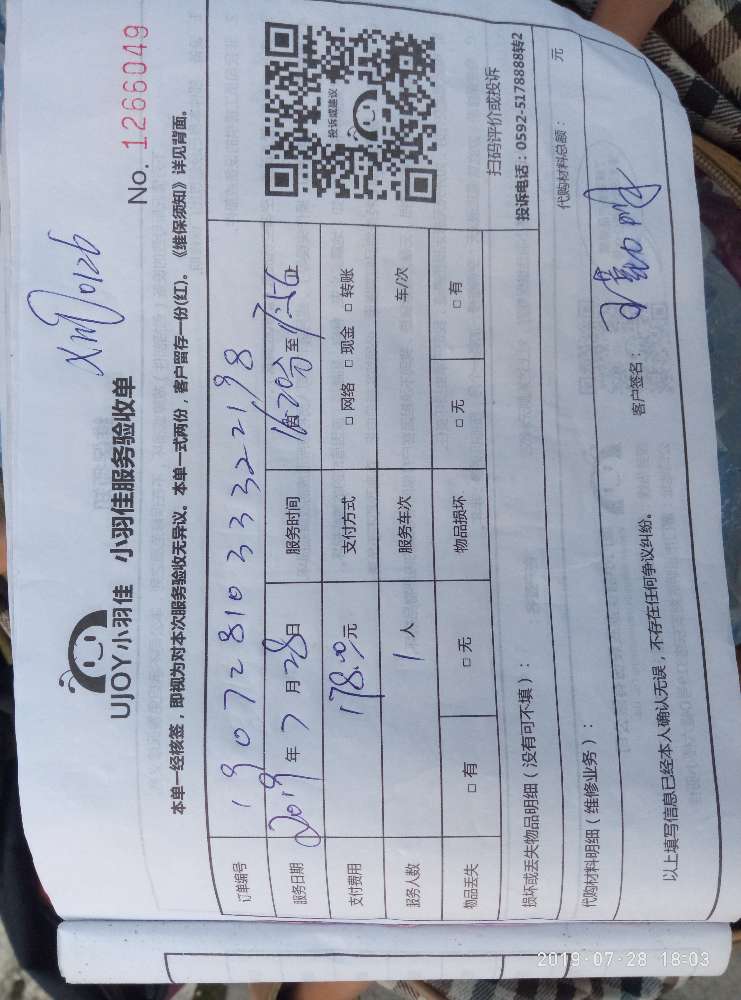 xm7 0126
UJOY小羽佳 小羽佳服务验收单
No. 1266049
本单一经核签，即视为对本次服务验收无异议。本单一式两份，客户留存一份(红)。《维保须知》详见背面。
订单编号 190728103332219 8
服务日期 2019年7月28日 服务时间 16时20分至17:56
支付费用 178.00元 支付方式 □ 网络 □ 现金 □ 转账
服务人数 1 人 服务车次 车/次
物品丢失 □ 有 □ 无 物品损坏 □ 无 □ 有
投诉或建议
扫码评价或投诉
投诉电话：0592-5178888转2
损坏或丢失物品明细（没有可不填）：
代购材料明细（维修业务）： 代购材料总额： 元
以上填写信息已经本人确认无误，不存在任何争议纠纷。 客户签名：
2019-07-28 18:03